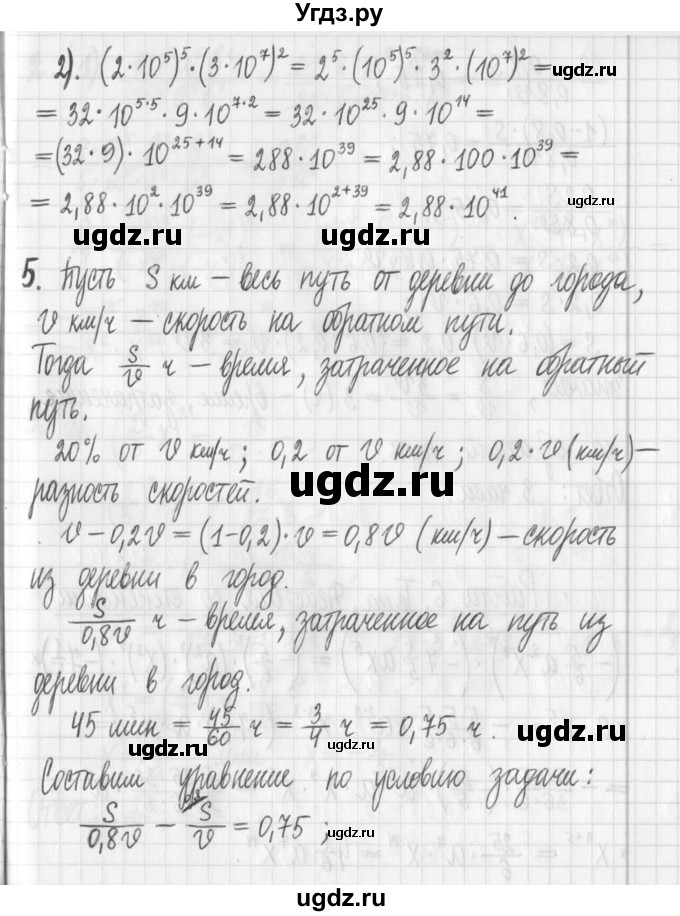 Угдз.ру
2). (2·10⁵)⁵·(3·10⁷)² = 2⁵·(10⁵)⁵·3²·(10⁷)² =
ugdz.ru
= 32·10⁵·⁵·9·10⁷·² = 32·10²⁵·9·10¹⁴ =
=(32·9)·10²⁵⁺¹⁴ = 288·10³⁹ = 2,88·100·10³⁹ =
ugdz.ru
= 2,88·10²·10³⁹ = 2,88·10²⁺³⁹ = 2,88·10⁴¹.
ugdz.ru ugdz.ru
5. Пусть S км – весь путь от деревни до города,
v км/ч – скорость на обратном пути.
Тогда S/v ч – время, затраченное на обратный
ugdz.ru
путь.
20% от v км/ч; 0,2 от v км/ч; 0,2·v (км/ч)–
ugdz.ru
разность скоростей.
v – 0,2v = (1-0,2)·v = 0,8v (км/ч) – скорость
из деревни в город.
S/0,8v ч – время, затраченное на путь из
ugdz.ru
деревни в город.
45 мин = 45/60 ч = 3/4 ч = 0,75 ч.
ugdz.ru ugdz.ru
Составим уравнение по условию задачи:
S/0,8v – S/v = 0,75;
ugdz.ru
Угдз.ру